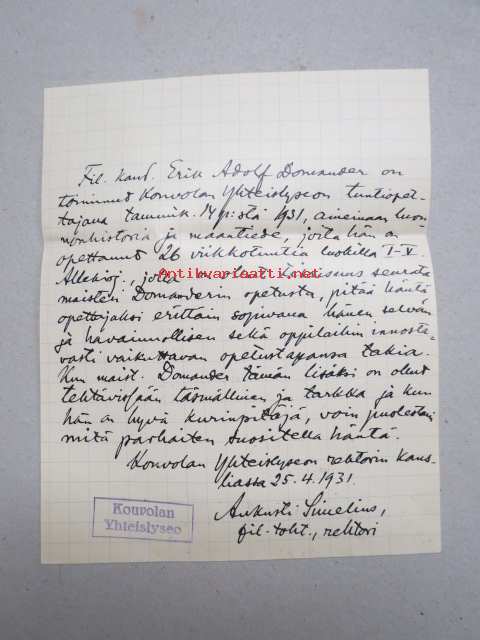 Fil. kand. Erik Adolf Domander on
toiminut Kouvolan Yhteislyseon tuntiopet-
tajana tammik. 14 p:stä 1931, aineinaan luon-
nonhistoria ja maantiede, joita hän on
opettanut 26 viikkotuntia luokilla I-V.
Allekirj., jolla on ollut tilaisuus seurata
maisteri Domanderin opetusta, pitää häntä
opettajaksi erittäin sopivana hänen selvän
ja havainnollisen sekä oppilaihin innosta-
vasti vaikuttavan opetustapansa takia.
Kun maist. Domander tämän lisäksi on ollut
tehtävissään täsmällinen ja tarkka ja kun
hän on hyvä kurinpitäjä, voin puolestani
mitä parhaiten suositella häntä.
Kouvolan Yhteislyseon rehtorin kans-
liassa 25.4.1931.
Aukusti Simelius,
fil. toht., rehtori
Kouvolan
Yhteislyseo
Antikvariaatti.net